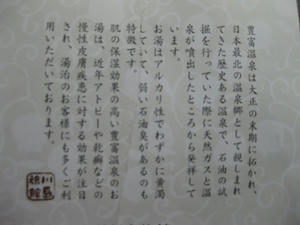 豊富温泉は大正の末期に拓かれ、
日本最北の温泉郷として親しまれ
てきた歴史ある温泉で、石油の試
掘を行っていた際に天然ガスと温
泉が噴出したところから発祥して
います。
お湯はアルカリ性でわずかに黄濁
していて、弱い石油臭があるのも
特徴です。
肌の保湿効果の高い豊富温泉のお
湯は、近年アトピーや乾癬などの
慢性皮膚疾患に対する効果が注目
され、湯治のお客様にも多くご利
用いただいております。
川島
旅館